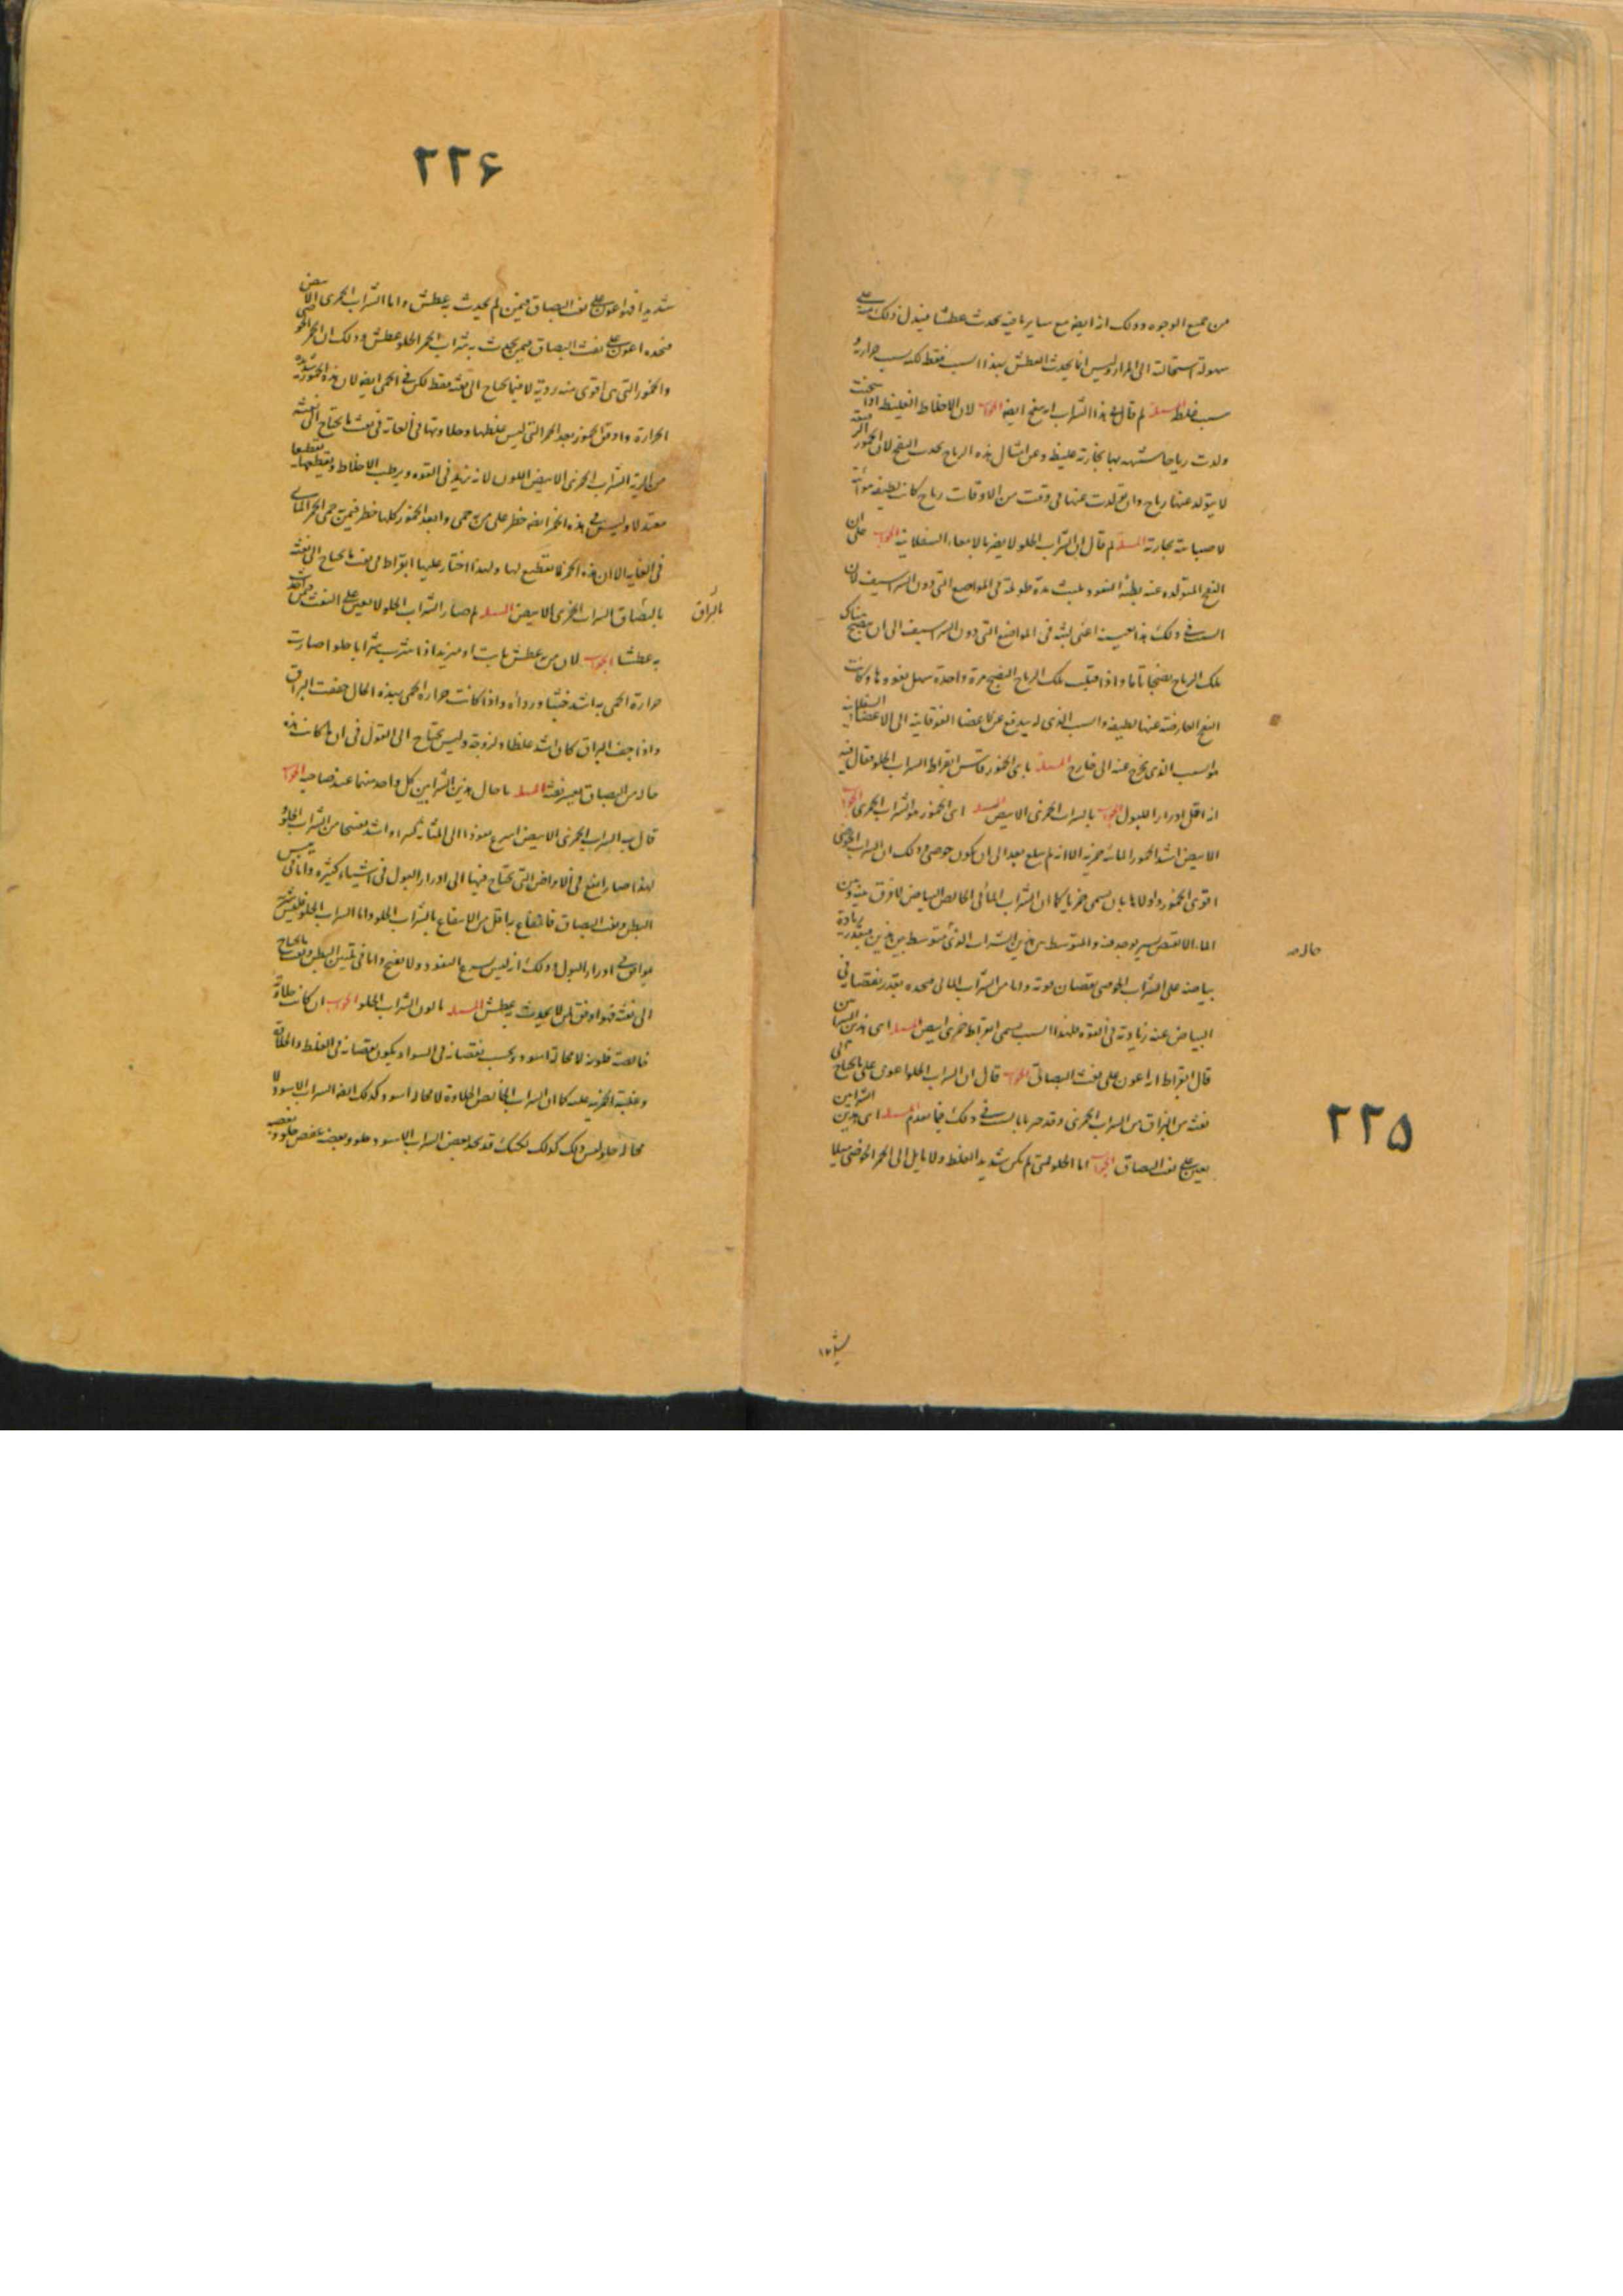 ٢٢٥
من جميع الوجوه وذلك انه ايضا مع ساير ما فيه يحدث عطشا فيدل ذلك منه على
سهولة استحالته الى المرار وليس انما يحدث العطش بهذا السبب فقط لكنه بسبب حرارته و
سبب غلظه المسئلة لم قال في هذا الشراب انه ينفخ ايضا الجواب لان الاخلاط الغليظة اذا سخنت
ولدت رياحا شبيهة بها بخارية غليظة وعن امثال هذه الرياح يحدث النفخ لان الخمور
لا يتولد عنها رياح وان تولدت عنها في وقت من الاوقات رياح كانت لطيفة هوائية
لا ضبابية بخارية المسئلة لم قال ان الشراب الحلو لا يضر بالامعاء السفلانية الجواب على ان
النفخ المتولدة عنه بطيئة النفوذ تلبث مدة طويلة في المواضع التي دون الشراسيف لان
السبب في ذلك هذا بعينه اعني لبثه في المواضع التي دون الشراسيف الى ان ينضج هناك
تلك الرياح نضجا تاما واذا قبلت تلك الرياح النضج مرة واحدة سهل نفوذها وكانت
النفخ العارضة عنها لطيفة والسبب الذي له يندفع عن الاعضاء الفوقانية الى الاعضاء السفلانية
هو السبب الذي يخرج عنه الى خارج المسئلة باي الخمور قاس ابقراط الشراب الحلو فقال فيه
انه اقل ادرارا للبول الجواب بالشراب الخمري الابيض المسئلة اي الخمور هو الشراب الخمري الجواب
الابيض اشد الخمور المائية خمرية الا انه لم يبلغ بعد الى ان يكون حوصي وذلك ان الشراب الحوصي
اقوى الخمور واولاها بان يسمى خمريا كما ان الشراب المائي الخالص البياض لا فرق بينه وبين
الماء الا بقبض يسير يوجد فيه والمتوسط بين هذين الشراب الذي متوسط بين هذين فبقدر زيادة
بياضه على الشراب الحوصي نقصان قوته واما من الشراب المائي فتجده بقدر نقصانه في
البياض عنه زيادته في القوة فلهذا السبب يسمى ابقراط خمري ابيض المسئلة اي هذين الشرابين
قال ابقراط انه اعون على نفث البصاق الجواب قال ان الشراب الحلو اعون على ما يحتاج الى
نفثه من البزاق من الشراب الخمري وقد خبرنا بالسبب في ذلك فيما تقدم المسئلة اي هذين الشرابين
يعين على نفث البصاق الجواب اما الحلو فمتى لم يكن شديد الغلظ ولا مايل الى الحمر الحوصي ميلا
٢٢٦
شديدا فهو اعون على نفث البصاق فيمن لم يحدث به عطش واما الشراب الخمري الابيض
فتجده اعون على نفث البصاق فيمن يحدث به شراب الخمر الحلو عطش وذلك ان الخمر الحوصي
والخمور التي هي اقوى منه روية لا فيما يحتاج الى نفثه فقط لكن في الحمى ايضا لان هذه الخمور شديدة
الحرارة واوفق الخمور بعد الخمر التي ليس غلظها وحلاوتها في الغاية في نفث ما يحتاج الى نفثه
من الرية الشراب الخمري الابيض اللون لانه يزيد في القوة ويرطب الاخلاط ويقطعها تقطيعا
معتدلا وليس في هذه الخمر ايضا خطر على من به حمى وابعد الخمور كلها خطر فيمن حمى الخمر المائي
في الغاية الا ان هذه الخمر لا تقطيع لها ولهذا اختار عليها ابقراط في نفث ما يحتاج الى نفثه
بالبصاق الشراب الخمري الابيض المسئلة لم صار الشراب الحلو لا يعين على النفث فيمن احدث
بالبزاق
به عطشا الجواب لان من به عطش ثابت او مزيد اذا شرب شرابا حلوا صارت
حرارة الحمى به اشد خبثا ورداءه واذا كانت حرارة الحمى بهذه الحال جففت البزاق
واذا جف البزاق كان اشد غلظا ولزوجة وليس يحتاج الى القول في ان ما كانت هذه
حاله من البصاق يعسر نفثه المسئلة ما حال هذين الشرابين كل واحد منهما عند صاحبه الجواب
قال ب الشراب الخمري الابيض اسرع نفوذا الى المثانة كثيرا واشد تفتيحا من الشراب الحلو و
لهذا صار انفع في الامراض التي يحتاج فيها الى ادرار البول في اشياء كثيرة واما في تليين
البطن ونفث البصاق فالانتفاع به اقل من الانتفاع بالشراب الحلو واما الشراب الحلو فليس
موافق في ادرار البول وذلك انه ليس سريع النفوذ ولا يفتح واما في تليين البطن ونفث ما يحتاج
الى نفثه فهو اوفق لمن لا يحدث به عطش المسئلة ما لون الشراب الحلو الجواب ان كانت حلاوته
خالصة فلونه لا محالة اسود وبحسب نقصانه في السواد يكون نقصانه في الغلظ والحلاوة
وغلبة الخمرية عليه كما ان الشراب الخالص الحلاوة لا محالة اسود كذلك ايضا الشراب الاسود لا
محالة حلو ليس ذلك كذلك لكنك قد تجد بعض الشراب الاسود حلو وبعضه عفص حلو وبعضه